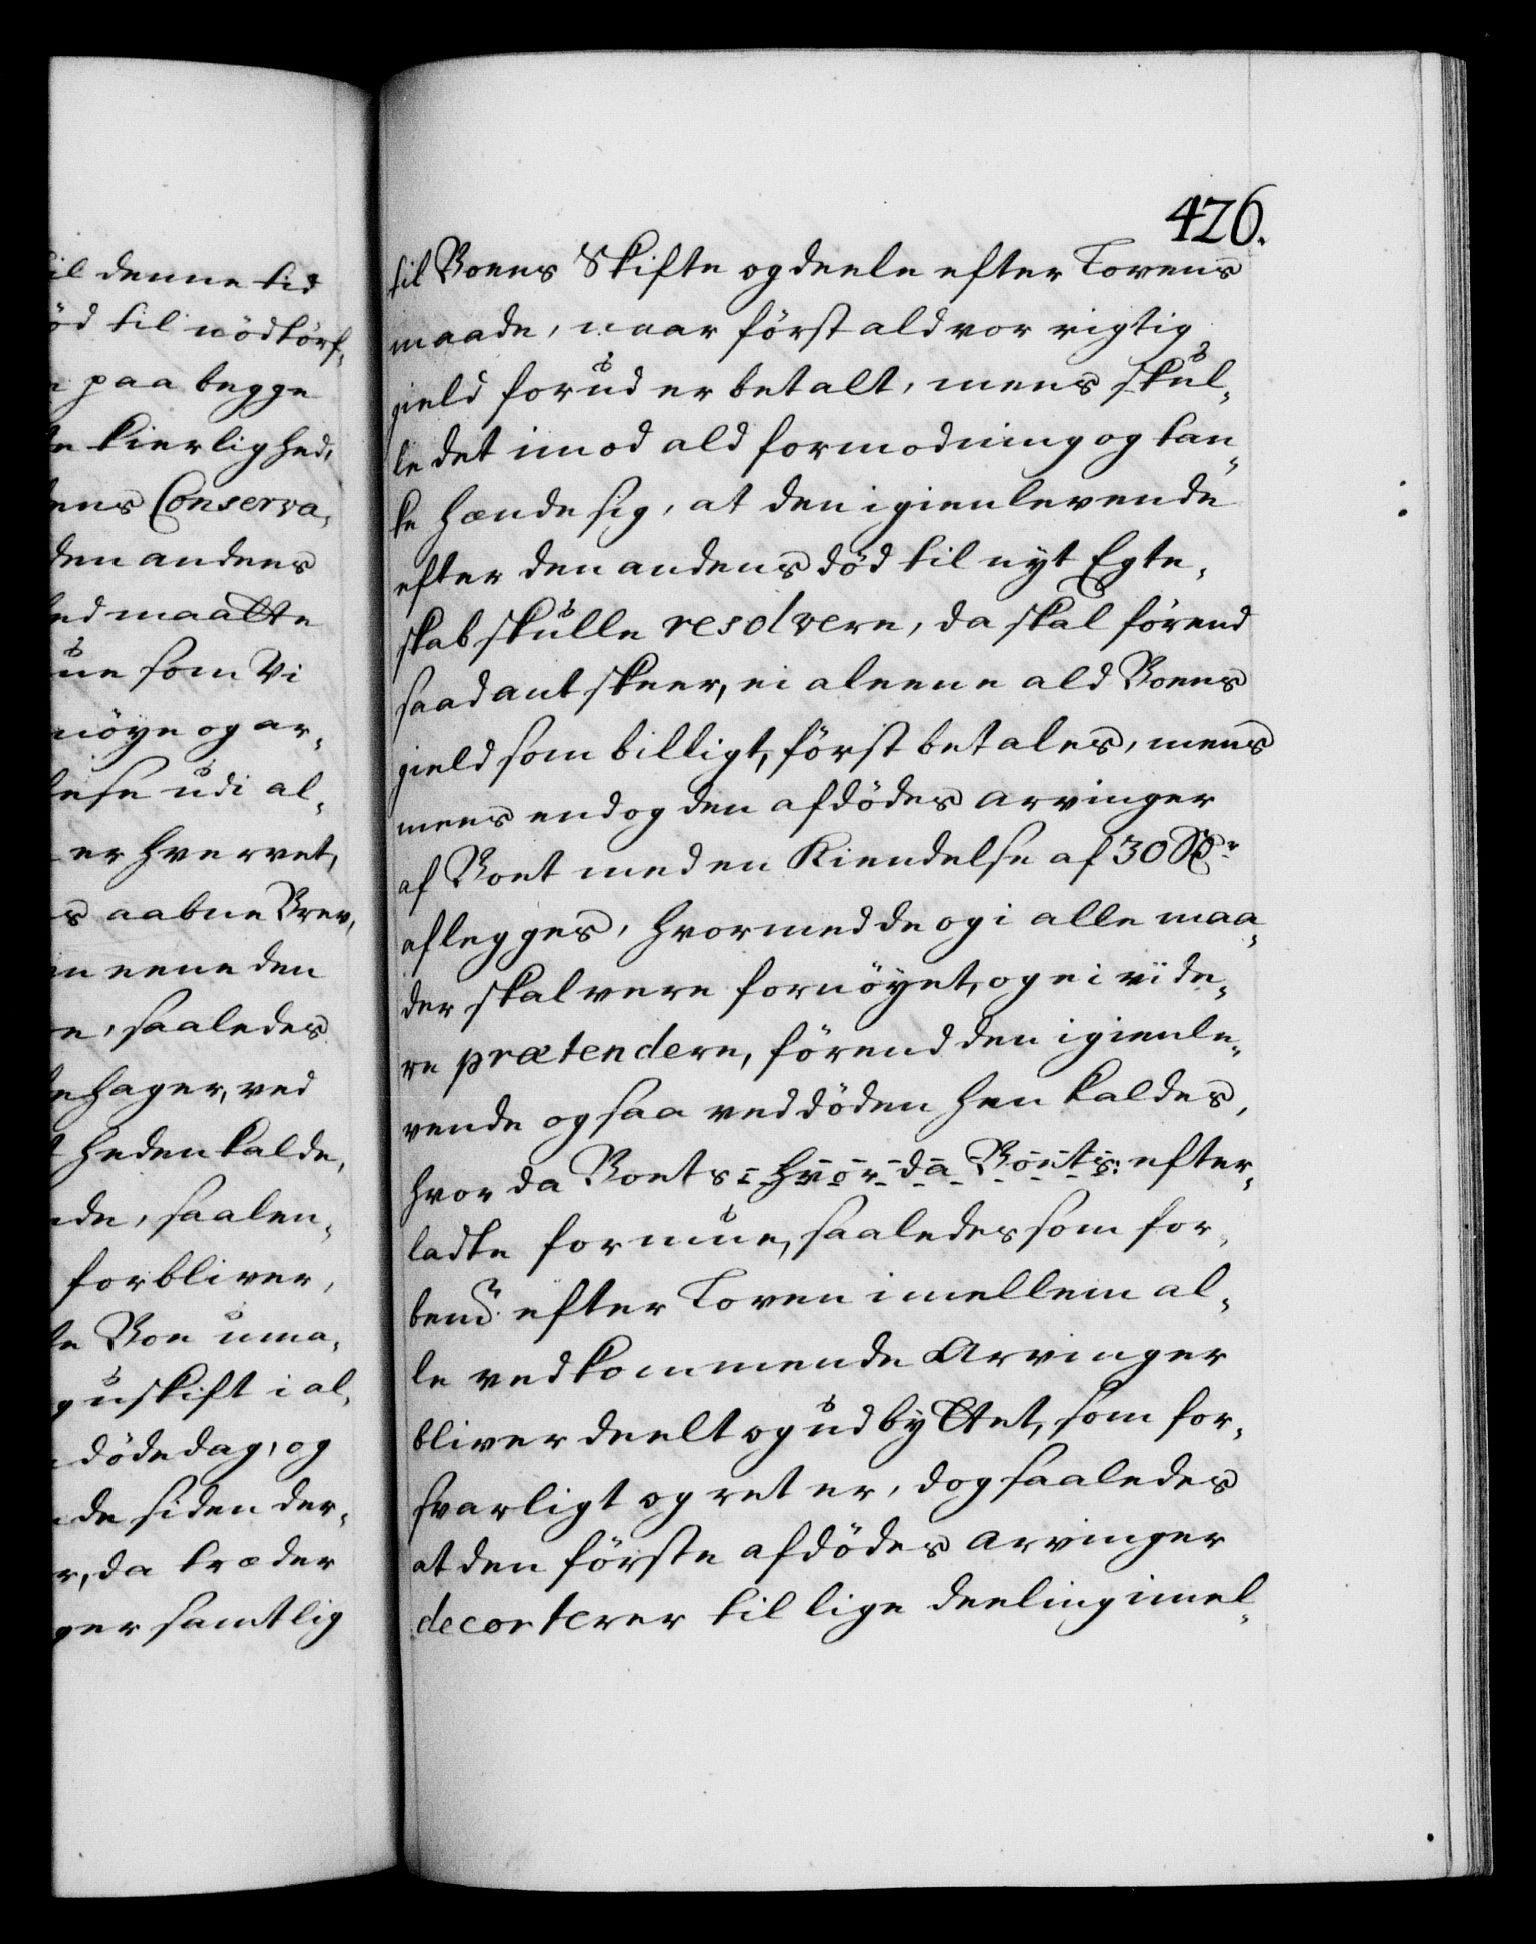 til denne tid
ød til nødtørf¬
paa begge
kierlighed,
ens Conserva¬
den andens
ed maatte
ue som Vi
nöye og ar¬
else udi al¬
er hvervet,
s aabne Brev,
eene den
e, saaledes
behager, ved
heden kalde,
de, saalen¬
forbliver,
Boe uma¬
uskift i al¬
döde dag, og
de siden der¬
r, da træder
ger samtlig
426.
til Boens Skifte og deele efter Lovens
maade, naar först ald vor rigtig
gield forud er betalt, mens skul¬
le det imod ald formodning og tan¬
ke hænde sig, at den igienlevende
efter den andens död til nyt Egte¬
skab skulle resolvere, da skal förend
saadant skeer, ei aleene ald Boens
gield som billigt, först betales, mens
mens endog den afdödes arvinger
af Boet med en Kiendelse af 30 Rdr
aflegges, hvormed de og i alle maa¬
der skal vere fornöyet, og ei vide¬
re prætendere, förend den igienle¬
vende ogsaa ved döden hen kaldes,
hvor da Boets hvor da Boets: efter¬
ladte formue, saaledes som for¬
bemt. efter Loven imellem al¬
le vedkommende Arvinger
bliver deelt og udbyttet, som for¬
svarligt og ret er, dog saaledes
at den förste afdödes arvinger
decorterer til lige deeling imel¬